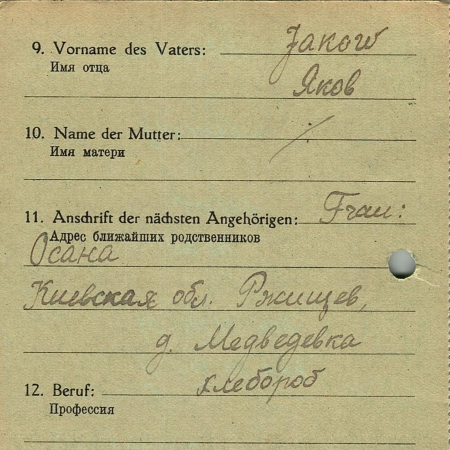 9. Vorname des Vaters: Jakow
Имя отца Яков
10. Name der Mutter: ⁒
Имя матери
11. Anschrift der nächsten Angehörigen: Frau:
Адрес ближайших родственников
Осана
Киевская обл. Ржищев,
д. Медведевка
12. Beruf: хлебороб
Профессия